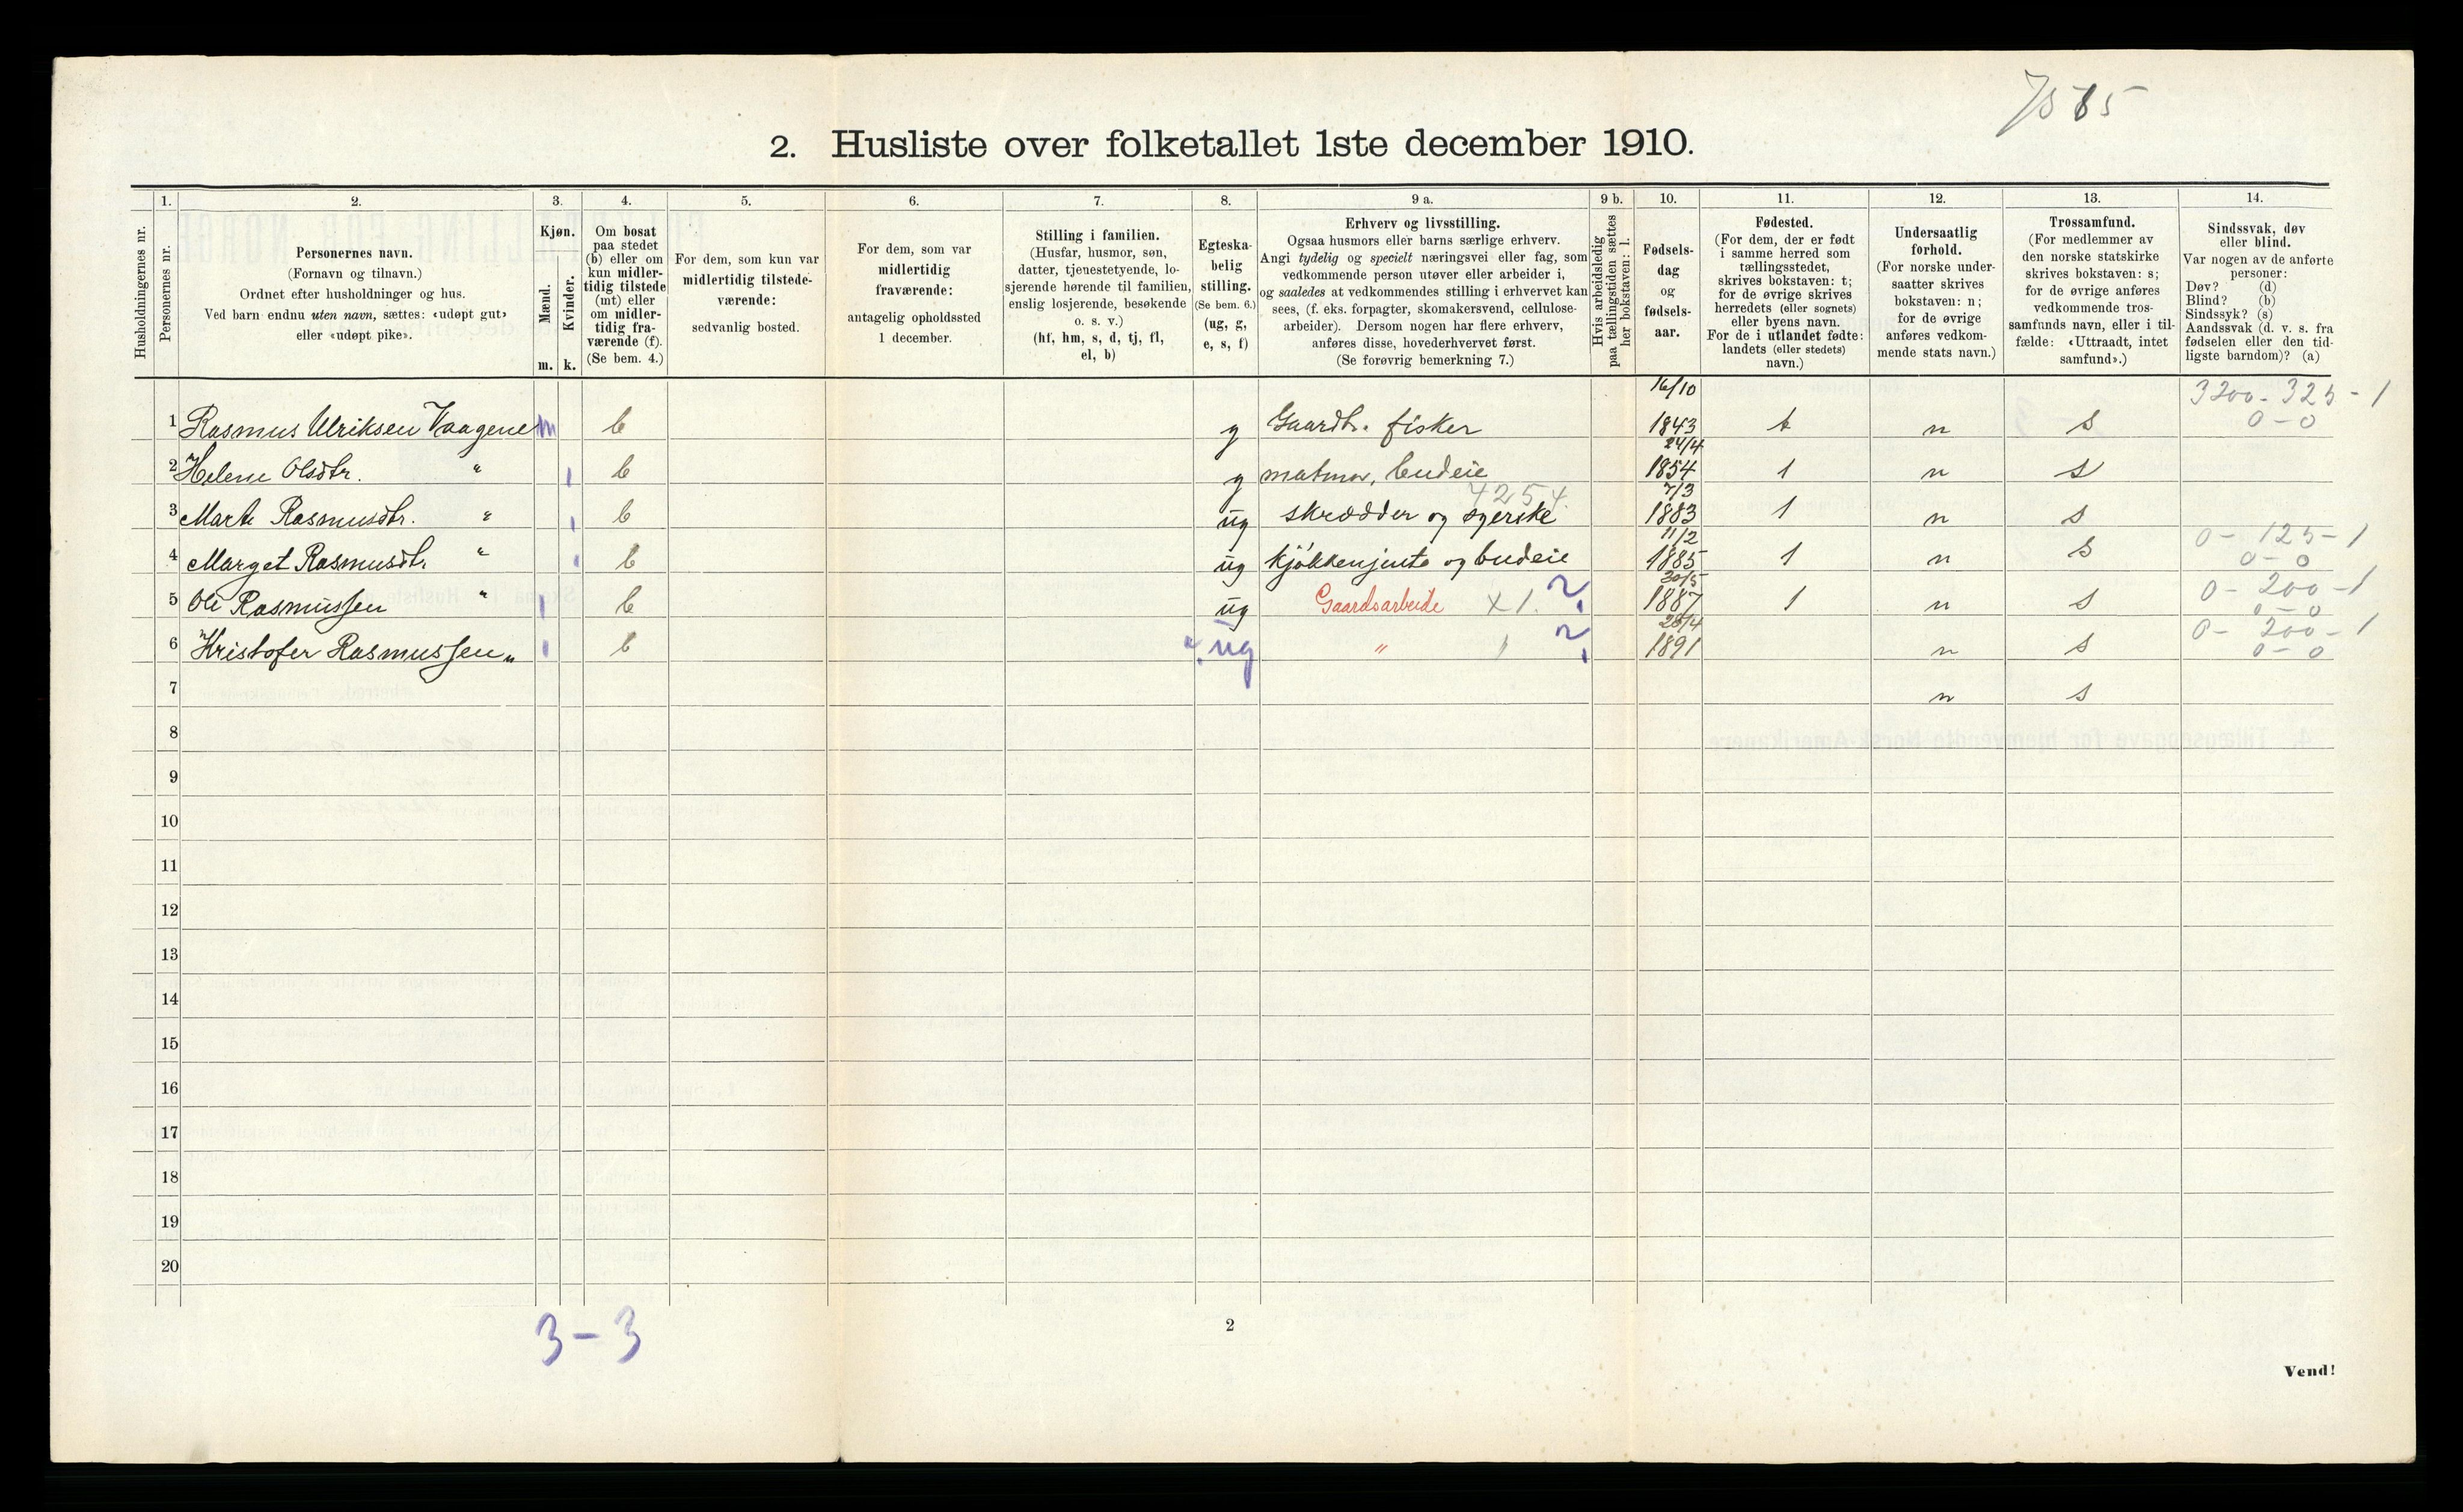 7585
2. Husliste over folketallet 1ste december 1910.
Husholdningernes nr.
1. Personernes nr.
2. Personernes navn. (Fornavn og tilnavn.) Ordnet efter husholdninger og hus. Ved barn endnu uten navn, sættes: «udøpt gut» eller «udøpt pike».
3. Kjøn. Mænd. m. Kvinder. k.
4. Om bosat paa stedet (b) eller om kun midlertidig tilstede (mt) eller om midlertidig fraværende (f). (Se bem. 4.)
5. For dem, som kun var midlertidig tilstedeværende: sedvanlig bosted.
6. For dem, som var midlertidig fraværende: antagelig opholdssted 1 december.
7. Stilling i familien. (Husfar, husmor, søn, datter, tjenestetyende, losjerende hørende til familien, enslig losjerende, besøkende o. s. v.) (hf, hm, s, d, tj, fl, el, b)
8. Egteskabelig stilling. (Se bem. 6.) (ug, g, e, s, f)
9 a. Erhverv og livsstilling. Ogsaa husmors eller barns særlige erhverv. Angi tydelig og specielt næringsvei eller fag, som vedkommende person utøver eller arbeider i, og saaledes at vedkommendes stilling i erhvervet kan sees, (f. eks. forpagter, skomakersvend, cellulosearbeider). Dersom nogen har flere erhverv, anføres disse, hovederhvervet først. (Se forøvrig bemerkning 7.)
9 b. Hvis arbeidsledig paa tællingstiden sættes her bokstaven: l.
10. Fødselsdag og fødselsaar.
11. Fødested. (For dem, der er født i samme herred som tællingsstedet, skrives bokstaven: t; for de øvrige skrives herredets (eller sognets) eller byens navn. For de i utlandet fødte: landets (eller stedets) navn.)
12. Undersaatlig forhold. (For norske undersaatter skrives bokstaven: n; for de øvrige anføres vedkommende stats navn.)
13. Trossamfund. (For medlemmer av den norske statskirke skrives bokstaven: s; for de øvrige anføres vedkommende trossamfunds navn, eller i tilfælde: «Uttraadt, intet samfund».)
14. Sindssvak, døv eller blind. Var nogen av de anførte personer: Døv? (d) Blind? (b) Sindssyk? (s) Aandssvak (d. v. s. fra fødselen eller den tidligste barndom)? (a)
1 Rasmus Ulriksen Vaagene m b g Gaardbr. fisker 16/10 1843 t n s 3200-325-1 0-0
2 Helene Olsdtr. " 1 b g matmor, budeie 24/4 1854 1 n s
3 Marte Rasmusdtr. " 1 b ug skrædder og syerske 4254 7/3 1883 1 n s
4 Marget Rasmusdt. " 1 b ug kjøkkenjente og budeie 11/2 1885 1 n s 0-125-1 0-0
5 Ole Rasmussen " 1 b ug Gaardsarbeide x 1. ? 30/5 1887 1 n s 0-200-1 0-0
6 Kristofer Rasmussen " 1 b ug " ? 28/4 1891 n s 0-200-1 0-0
7 n s
8
9
10
11
12
13
14
15
16
17
18
19
20
3-3
2
Vend!